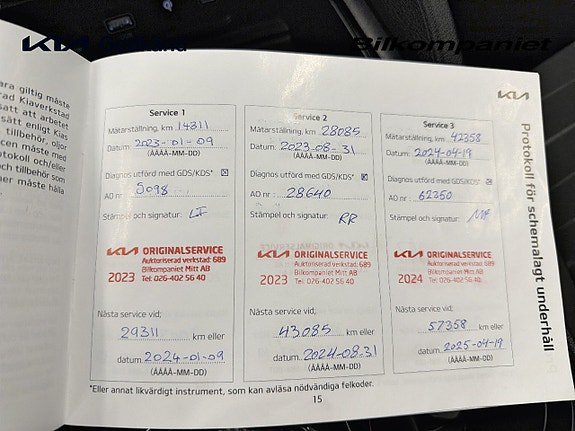 KIA
Bilkompaniet
ara giltig måste
rad Kiaverkstad
satt att arbetet
sätt enligt Kias
tillbehör, oljor
cen måste med
otokoll och/eller
och tillbehör som
ner måste hålla
KIA
Protokoll för schemalagt underhåll
Service 1
Mätarställning, km 14311
Datum: 2023-01-09
(ÅÅÅÅ-MM-DD)
Diagnos utförd med GDS/KDS* ☒
AO nr: 5098
Stämpel och signatur:
KIA ORIGINALSERVICE
Auktoriserad verkstad: 689
Bilkompaniet Mitt AB
2023 Tel: 026-402 56 40
Nästa service vid;
29311 km eller
datum: 2024-01-09
(ÅÅÅÅ-MM-DD)
Service 2
Mätarställning, km 28085
Datum: 2023-08-31
(ÅÅÅÅ-MM-DD)
Diagnos utförd med GDS/KDS* ☒
AO nr: 28640
Stämpel och signatur: RR
KIA ORIGINALSERVICE
Auktoriserad verkstad: 689
Bilkompaniet Mitt AB
2023 Tel: 026-402 56 40
Nästa service vid;
43085 km eller
datum: 2024-08-31
(ÅÅÅÅ-MM-DD)
Service 3
Mätarställning, km 42358
Datum: 2024-04-19
(ÅÅÅÅ-MM-DD)
Diagnos utförd med GDS/KDS* ☒
AO nr: 62350
Stämpel och signatur:
KIA ORIGINALSERVICE
Auktoriserad verkstad: 689
Bilkompaniet Mitt AB
2024 Tel: 026-402 56 40
Nästa service vid;
57358 km eller
datum: 2025-04-19
(ÅÅÅÅ-MM-DD)
*Eller annat likvärdigt instrument, som kan avläsa nödvändiga felkoder.
15